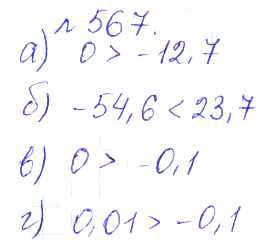 № 567.
а) 0 > -12,7
б) -54,6 < 23,7
в) 0 > -0,1
г) 0,01 > -0,1